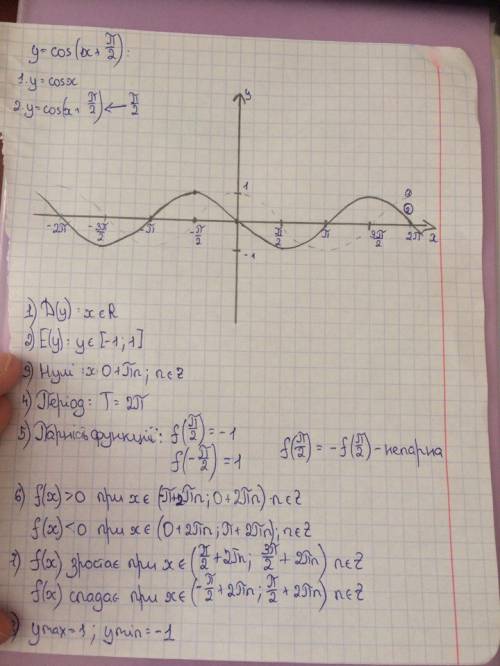 y=cos(x+π/2):
1.y=cosx
2.y=cos(x+π/2) ← π/2
y
1
-2π -3π/2 -π -π/2 π/2 π 3π/2 2π x
-1
1) D(y): x∈R
2) E(y): y∈[-1;1]
3) Нулі: x 0+πn; n∈Z
4) Період: T=2π
5) Парність функції: f(π/2)=-1
f(-π/2)=1 f(π/2)=-f(π/2)-непарна
6) f(x)>0 при x∈(-π+2πn; 0+2πn) n∈Z
f(x)<0 при x∈(0+2πn; π+2πn); n∈Z
7) f(x) зростає при x∈(π/2+2πn; 3π/2+2πn) n∈Z
f(x) спадає при x∈(-π/2+2πn; π/2+2πn) n∈Z
ymax=1; ymin=-1